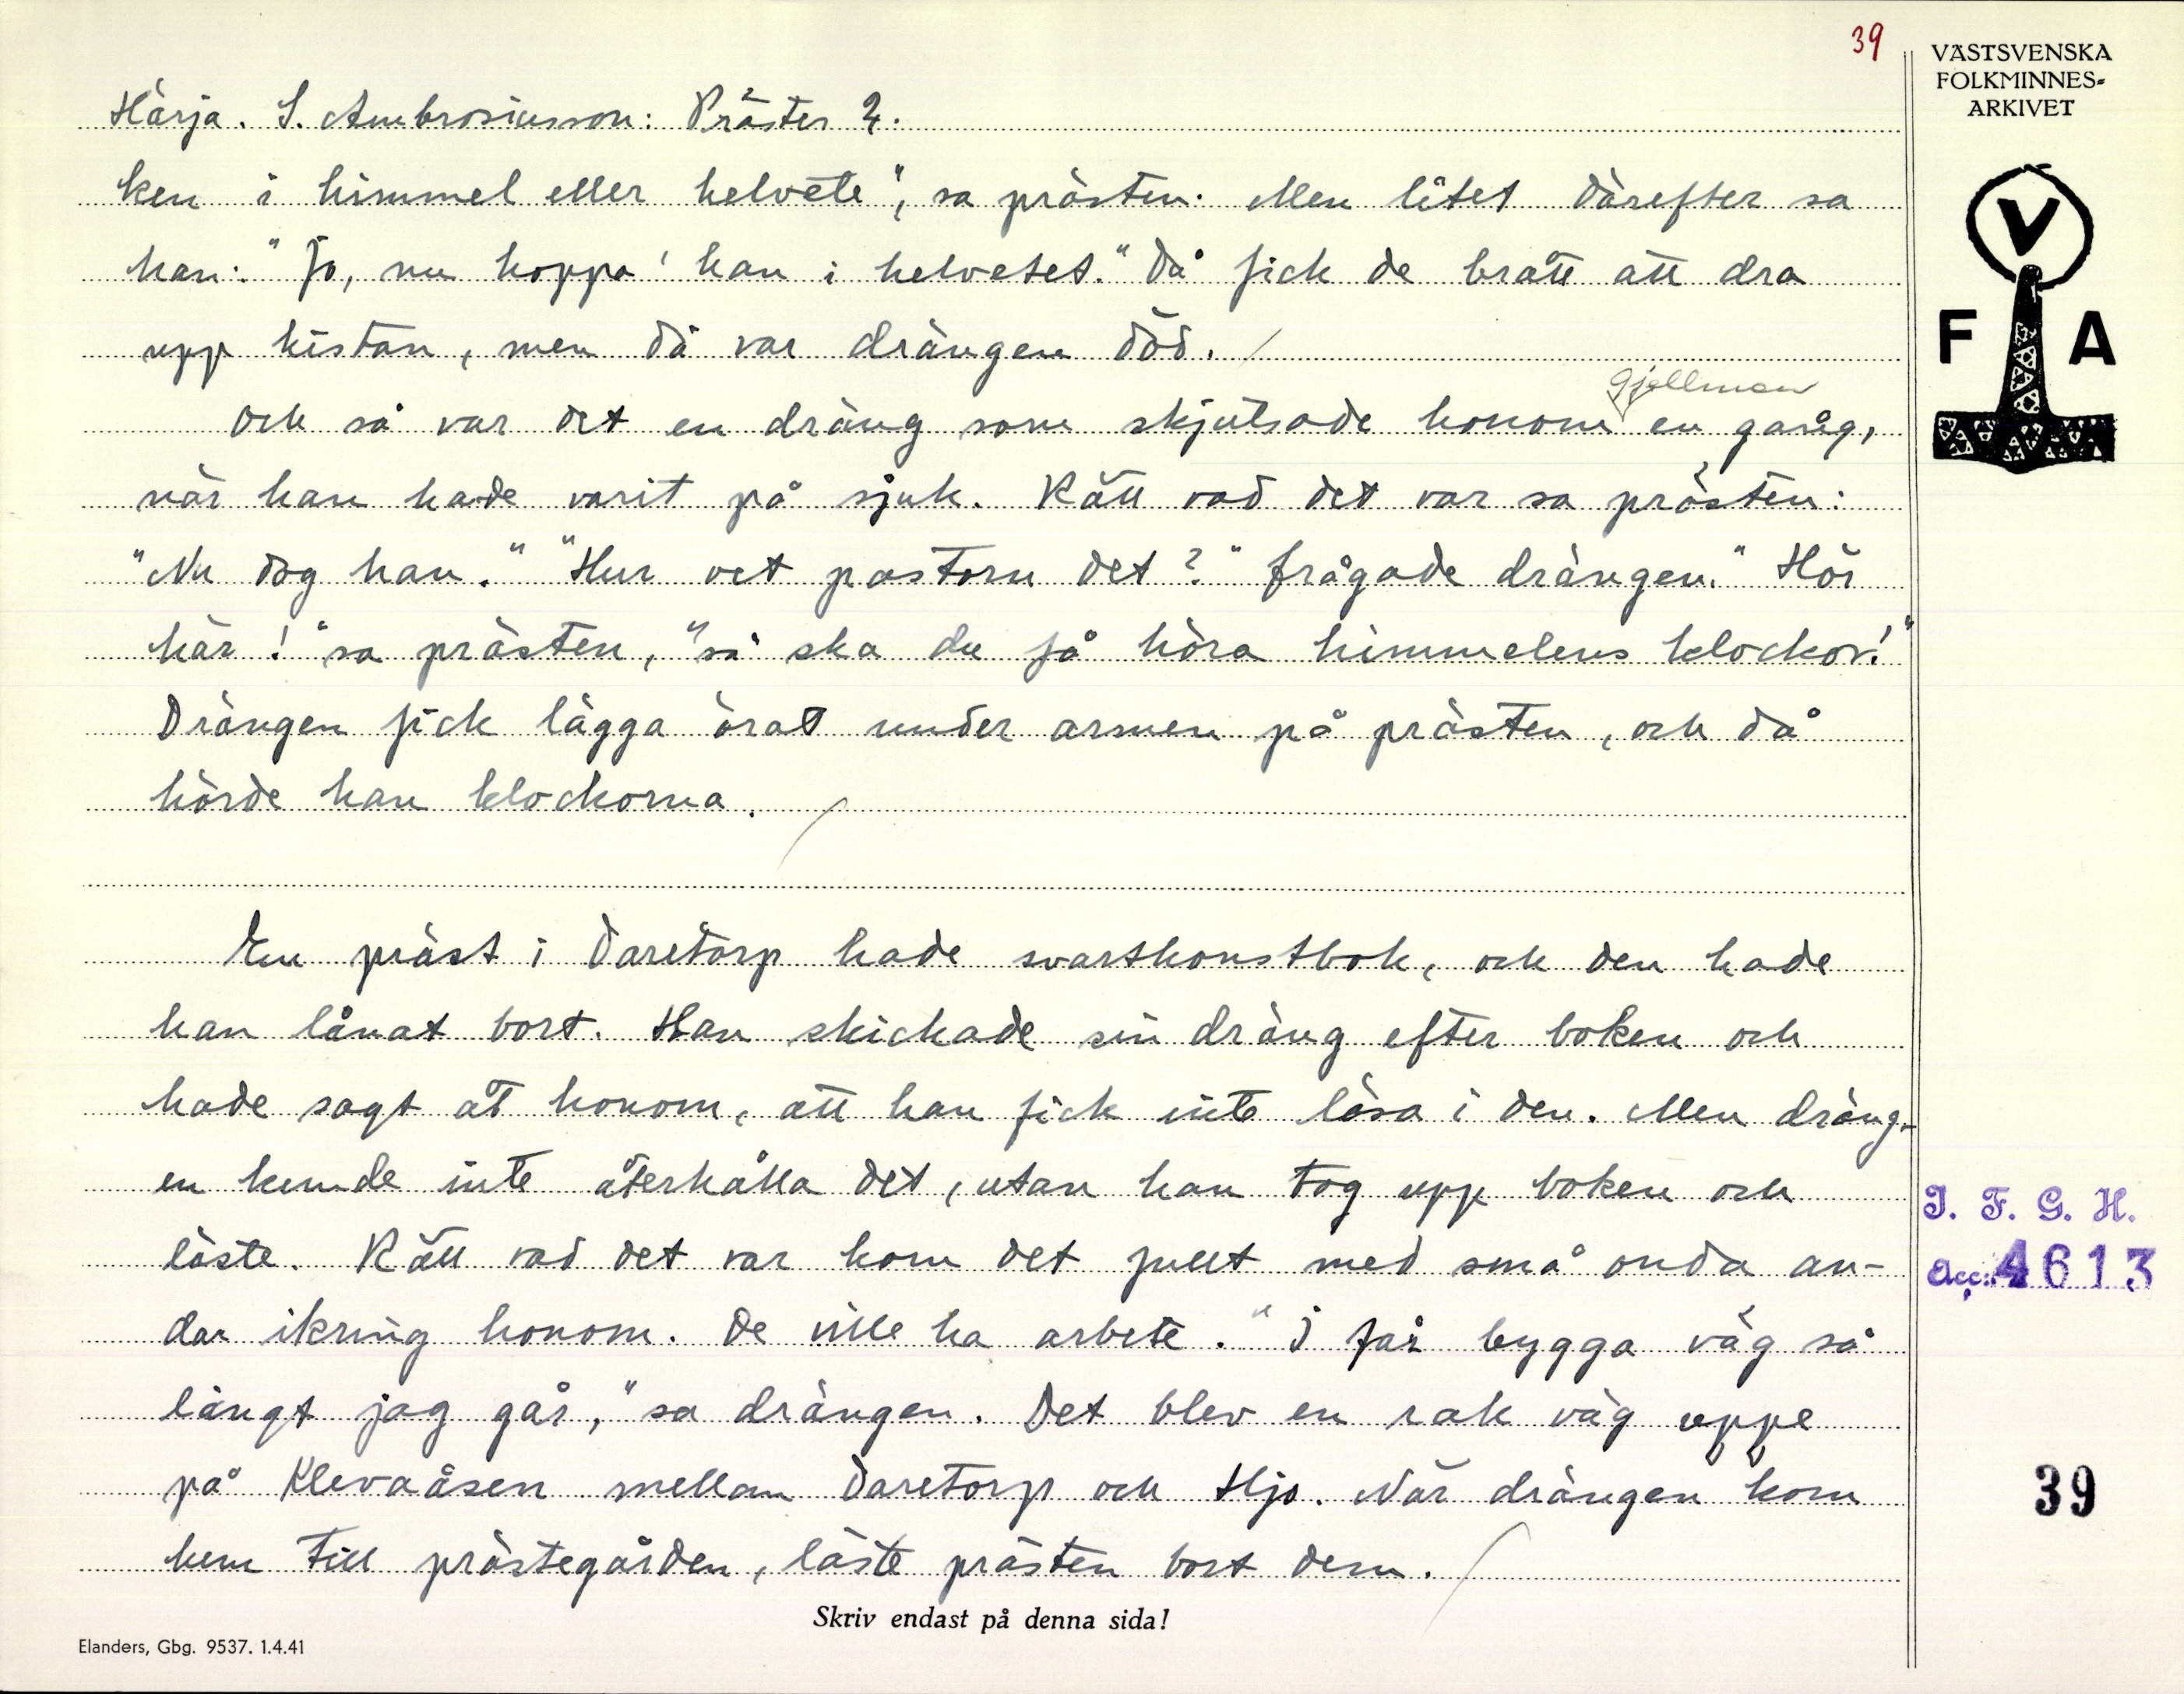 39
VÄSTSVENSKA
FOLKMINNES=
ARKIVET
Härja. S. Ambrosiusson: Präster 2.
ken i himmel eller helvete", sa prästen. Men litet därefter sa
han: "Jo, nu hoppa' han i helvetet." Då fick de brått att dra
upp kistan, men då var drängen död. /
Gjellman
Och så var det en dräng som skjutsade honom en gång,
när han hade varit på sjuk. Rätt vad det var sa prästen:
"Nu dog han." "Hur vet pastorn det?" frågade drängen. "Hör
här!" sa prästen, "så ska du få höra himmelens klockor!"
Drängen fick lägga örat under armen på prästen, och då
hörde han klockorna. /
En präst i Daretorp hade svartkonstbok, och den hade
han lånat bort. Han skickade sin dräng efter boken och
hade sagt åt honom, att han fick inte läsa i den. Men dräng-
en kunde inte återhålla det, utan han tog upp boken och
läste. Rätt vad det var kom det fullt med små onda an-
dar ikring honom. De ville ha arbete. "I får bygga väg så
långt jag går," sa drängen. Det blev en rak väg uppe
på Klevaåsen mellan Daretorp och Hjo. När drängen kom
hem till prästegården, läste prästen bort dem. /
Skriv endast på denna sida!
Elanders, Gbg. 9537. 1.4.41
V
F A
I. F. G. H.
Acc. 4613
39